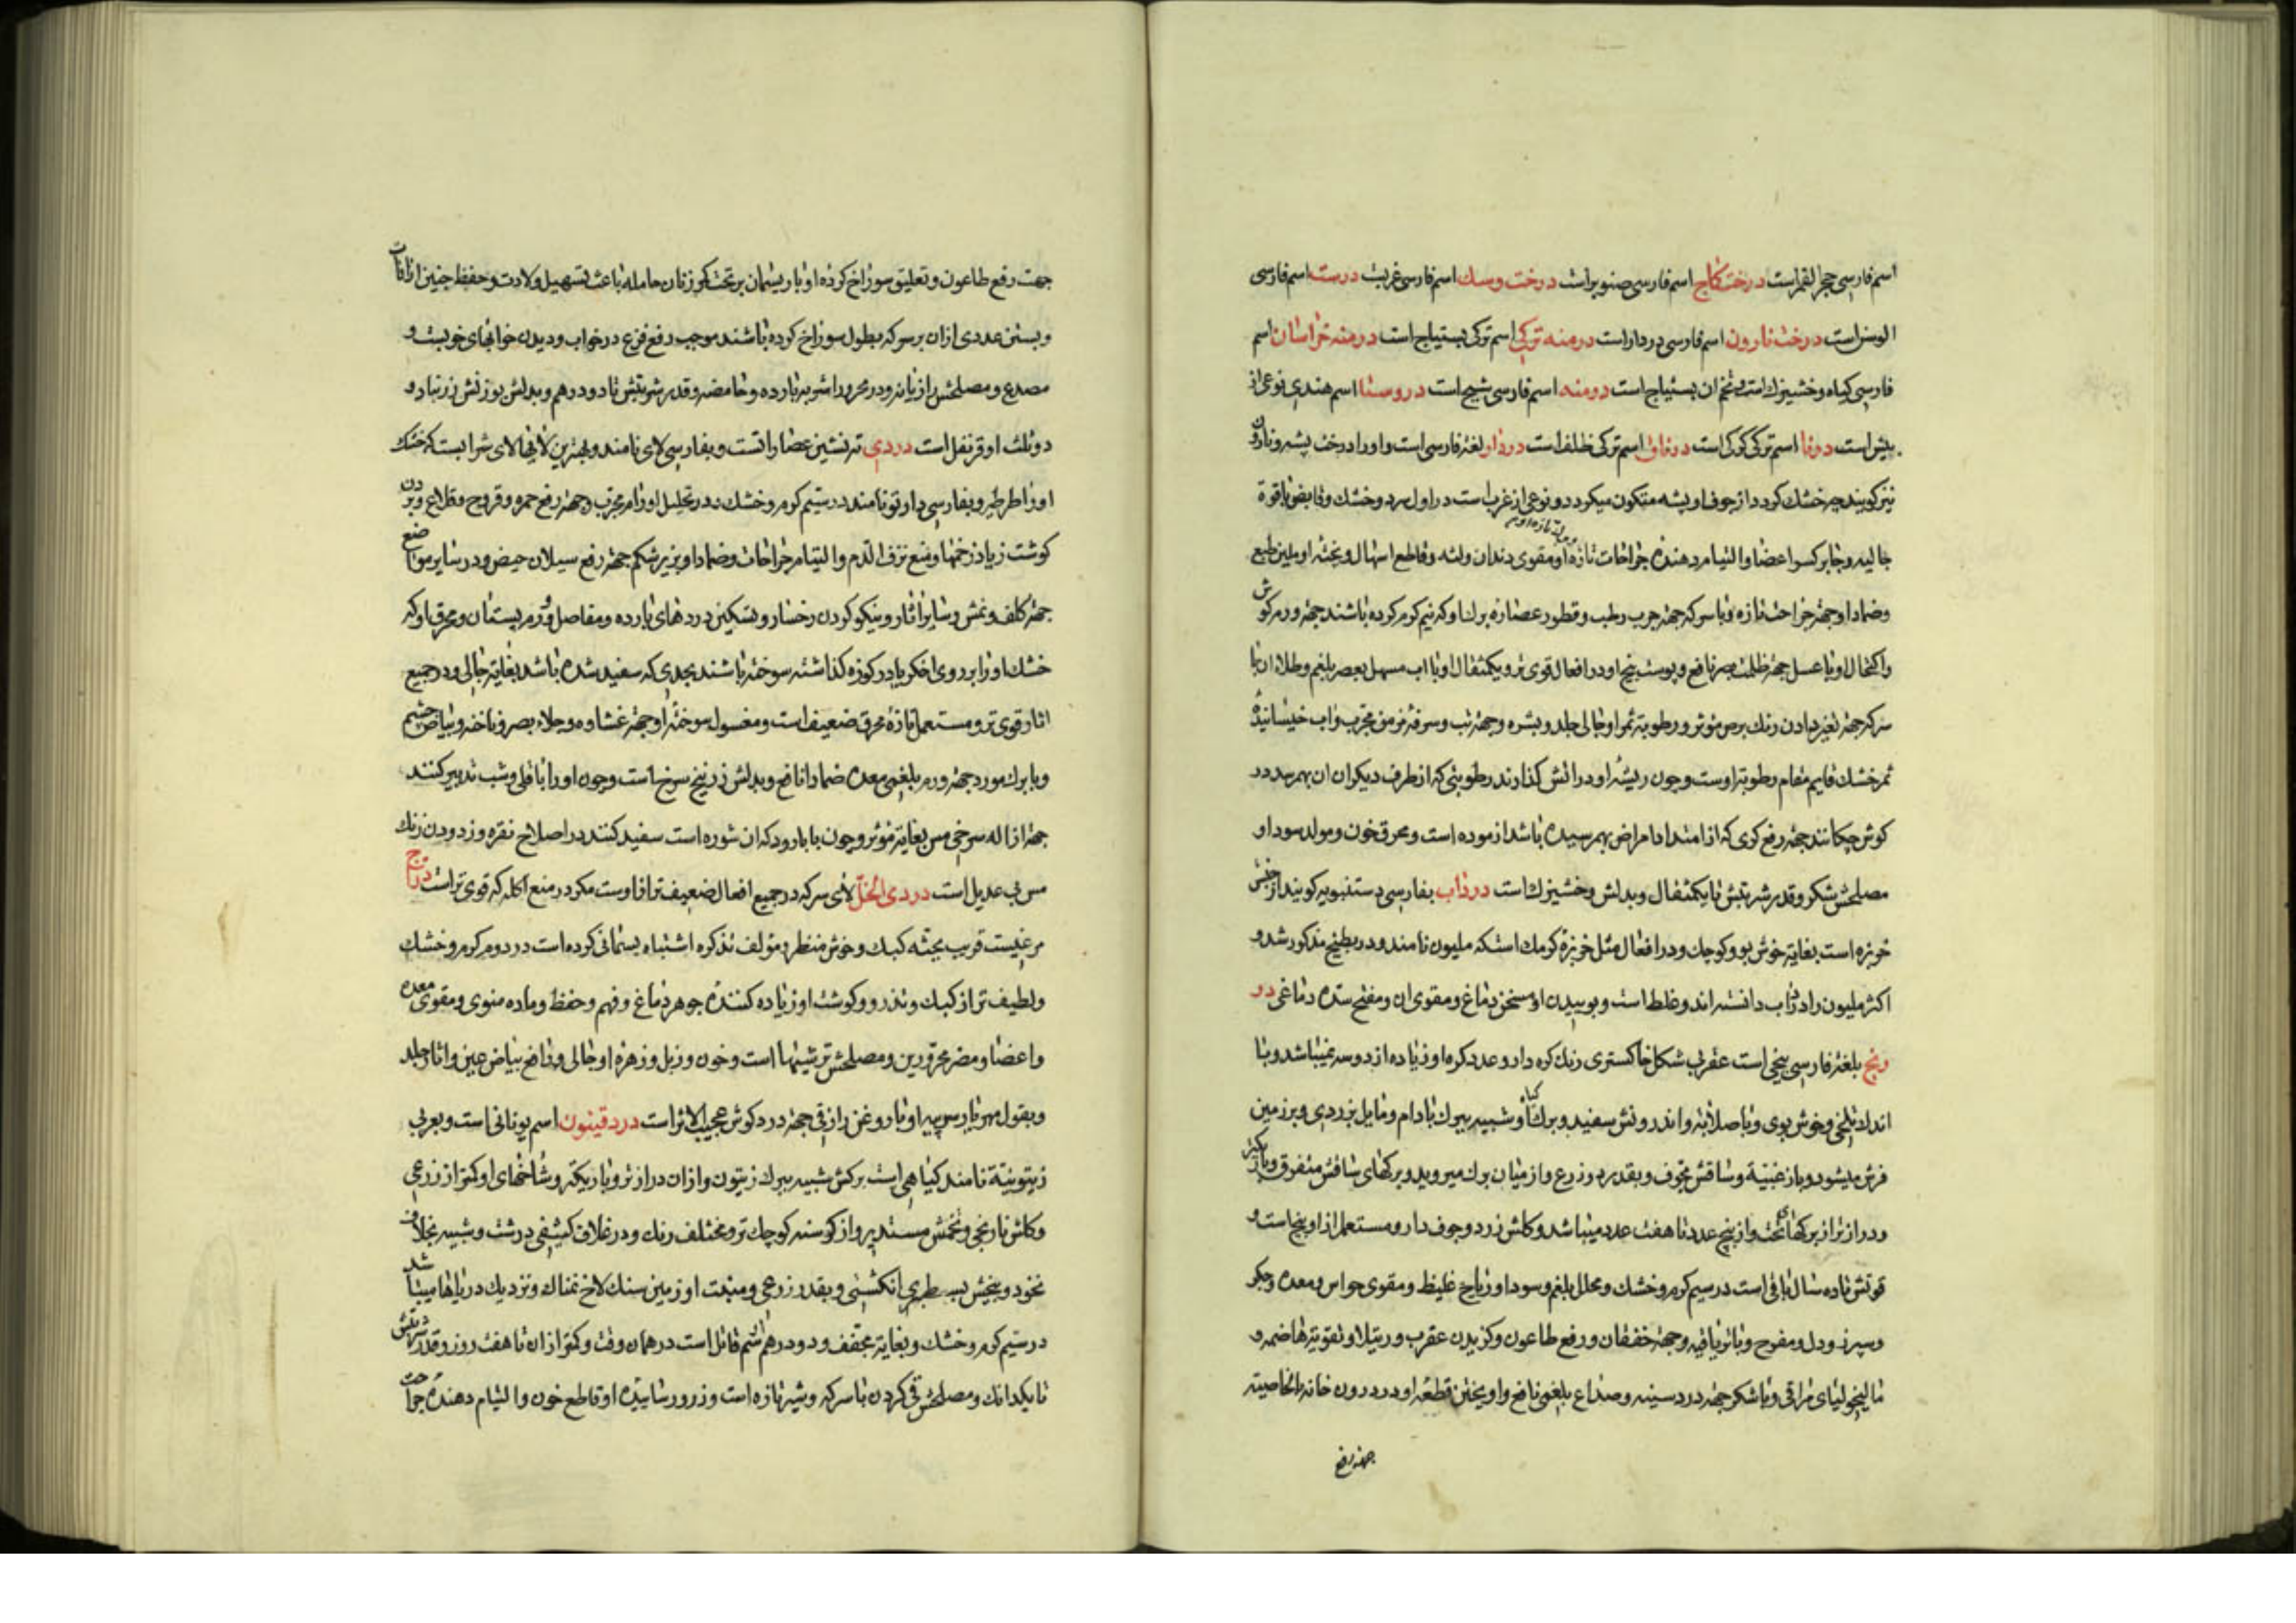 اسم فارسی حجر القمر است درخت کاج اسم فارسی صنوبر است درخت وسک اسم فارسی غربست درست اسم فارسی
است درخت نارون اسم فارسی دردار است درمنه ترکی اسم ترکی بستیاج است درمنه خراسان اسم
فارسی کیاه وخشیزک است وتخم ان بستیاج است درمنه اسم فارسی شیح است دروسنا اسم هندی نوعی از
بیش است درنا اسم ترکی کرکی است درناق اسم ترکی ظلف است دردار لغة فارسی است واورا درخت پشه ونارون
نیز کویند چه خشک کردد از جوف او پشه متکون میکردد ونوعی از غرب است در اول سرد وخشک وقابض وباقوة
جالیه وجابر کسر اعضا والتیام دهندهٔ جراحات تازه او مقوی دندان ولثه وقاطع اسهال وپخته او ملین طبع
وضماد او جهة جراحت تازه وبا سرکه جهة جرب رطب وقطور عصارهٔ برک او که نیم کرم کرده باشند جهة ورم کوش
واکتحال او با عسل جهة ظلمت بصر نافع وپوست بیخ او در افعال قوی تر ویکمثقال او با اب مسهل بلغم وطلاء ان با
سرکه جهة تغیر دادن رنک برص موثر ورطوبة ثمر او جالی جلد وبشره وجهة تب وسرفه مزمن مجرب واب خیسانیدهٔ
ثمر خشک قایم مقام رطوبة اوست وچون ریشهٔ او در اتش کذارند رطوبتی که از طرف دیکر ان بهم رسد در
کوش چکانند جهة رفع کری که از امتداد امراض بهم رسیده باشد ازموده است ومحرق خون ومولد سودا و
مصلحش شکر وقدر شربتش تا یکمثقال وبدلش وخشیزک است درداب بفارسی دستنبویه کویند از جنس
خربزه است بغایة خوش بو وکوچک ودر افعال مثل خربزهٔ کرمک است که ملیون نامند ودر بطیخ مذکور شد و
اکثر ملیون را دراب دانسته اند وغلط است وبوییدن او مسخن دماغ ومقوی ان ومفتح سدهٔ دماغی در
ونج بلغة فارسی بیخی است عقربی شکل خاکستری رنک کره دار وعدد کره او زیاده از دو سه نمیباشد وبا
اندک تلخی وخوش بوی وباصلابة واندرونش سفید وبرک کیاه او شبیه ببرک بادام ومایل بزردی وبرزمین
فرش میشود وباز غبیة وساقش مجوف وبقدر دو ذرع واز میان برک میروید وبرکهای ساقش متفرق وباریکتر
ودرازتر از برکهای تحت واز پنج عدد تا هفت عدد میباشد وکلش زرد وجوف دار ومستعمل از او بیخ است و
قوتش تا ده سال باقی است در سیم کرم وخشک ومحلل بلغم وسودا وریاح غلیظ ومقوی حواس ومعده وجکر
وسپرز ودل ومفرح وباتریاقیه وجهة خفقان ورفع طاعون وکزیدن عقرب ورتیلا وتقویة هاضمه و
مالیخولیای مراقی وباشکر جهة درد سینه وصداع بلغمی نافع واویختن قطعهٔ او در درون خانه بالخاصیة
جهة رفع
جهت رفع طاعون وتعلیق سوراخ کردهٔ او با ریسمان بر تحت کمر زنان حامله باعث تسهیل ولادت وحفظ جنین از افات
وبستن عددی ازان بر سر که بطول سوراخ کرده باشند موجب رفع فزع در خواب ودیدن خوابهای خوبست و
مصدع ومصلحش رازیانه ودر محرور اشربه بارده وحامضه وقدر شربتش تا دو درهم وبدلش بوزنش زرنباد و
دو ثلث او قرنفل است دردی ته نشین عصارات است وبفارسی لای نامند وبهترین لایها لای شرابست که خشک
اورا طرطیر وبفارسی داروتو نامند در سیم کرم وخشک ودر تحلیل اورام مجرب وجهة رفع حمره وقروح وقلاع وبردن
کوشت زیاد زخمها ومنع نزف الدم والتیام جراحات وضماد او بر زیر شکم جهة رفع سیلان حیض ودر سایر مواضع
جهة کلف ونمش وسایر اثار ونیکو کردن رخسار وتسکین دردهای بارده ومفاصل وورم پستان ومحرق او که
خشک اورا بر روی اخکر یا در کوزه کذاشته سوخته باشند بحدی که سفید شده باشد بغایة جالی ودر جمیع
اثار قوی تر ومستعمل تازهٔ محرق ضعیف است ومغسول سوختهٔ او جهة غشاوه وجلاء بصر وناخنه وبیاض چشم
وبا برک مورد جهة ورم بلغمی معده ضمادا نافع وبدلش زرنیخ سرخ است وچون اورا با قلی وشب تدبیر کنند
جهة ازاله سرخی مس بغایة موثر وچون با بارود که ان شوره است سفید کنند در اصلاح نقره وزدودن زنک
مس بی عدیل است دردی الخل لای سرکه در جمیع افعال ضعیف تر از اوست مکر در منع اکله که قوی تر است دراج
مرغیست قریب بجثهٔ کبک وخوش منظر ومولف تذکره اشتباه بسمانی کرده است در دوم کرم وخشک
ولطیف تر از کبک وتذرو وکوشت او زیاده کنندهٔ جوهر دماغ وفهم وحفظ وماده منوی ومقوی معده
واعضا ومضر محرورین ومصلحش ترشیها است وخون وزبل وزهرهٔ او جالی ورافع بیاض عین واثار جلد
وبقول مهراریس پیه او با روغن رازقی جهة درد کوش عجیب الاثر است دردقینون اسم یونانی است وبعربی
زیتونیة نامند کیاهی است برکش شبیه ببرک زیتون وازان درازتر وباریکتر وشاخهای او کمتر از زرعی
وکلش نارنجی وتخمش مستدیر واز کرسنه کوچک تر ومختلف رنک ودر غلاف کثیفی درشت وشبیه بغلاف
نخود وبیخش بسطبری انکشتی وبقدر زرعی ومنبت او زمین سنک لاخ نمناک ونزدیک دریاها میباشد
در سیم کرم وخشک وبغایة مجفف ودو درهم ان سم قاتل است در همان وقت وکمتر ازان تا هفت روز وقدر شربتش
تا یکدانک ومصلحش قی کردن با سرکه وشیر تازه است وذرور ساییدهٔ او قاطع خون والتیام دهندهٔ جراحت